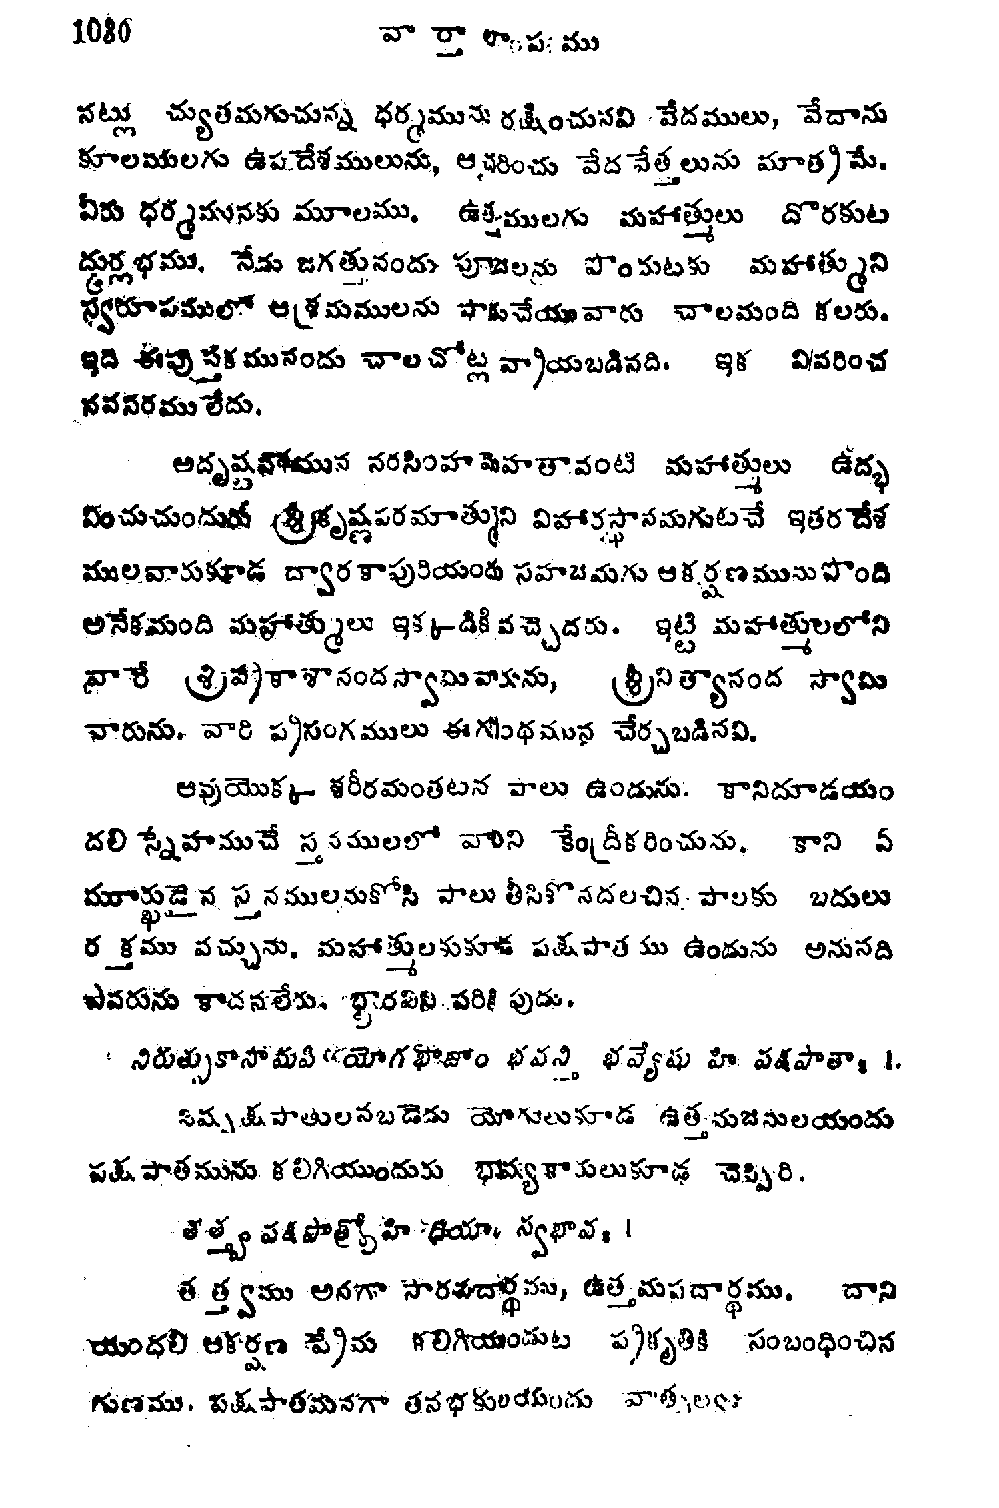 1080 వార్తాలాపము
నట్లు చ్యుతమగుచున్న ధర్మమును రక్షించునవి వేదములు, వేదాను
కూలములగు ఉపదేశములును, ఆచరించు వేదవేత్తలును మాత్రమే.
వీరు ధర్మమునకు మూలము. ఉత్తములగు మహాత్ములు దొరకుట
దుర్లభము. నేడు జగత్తునందు పూజలను పొందుటకు మహాత్ముని
స్వరూపములో ఆశ్రమములను పాడుచేయువారు చాలమంది కలరు.
ఇది ఈపుస్తకమునందు చాలచోట్ల వ్రాయబడినది. ఇక వివరించ
నవసరములేదు.
అదృష్టవశమున నరసింహమెహతావంటి మహాత్ములు ఉద్భ
వించుచుందురు శ్రీకృష్ణపరమాత్ముని విహారస్థానమగుటచే ఇతరదేశ
ములవారుకూడ ద్వారకాపురియందు సహజమగు ఆకర్షణమునుపొంది
అనేకమంది మహాత్ములు ఇక్కడికివచ్చెదరు. ఇట్టి మహాత్ములలోని
వారే శ్రీప్రకాశానందస్వామివారును, శ్రీనిత్యానంద స్వామి
వారును. వారి ప్రసంగములు ఈగ్రంథమున చేర్చబడినవి.
ఆవుయొక్క శరీరమంతటన పాలు ఉండును. కానిదూడయం
దలి స్నేహముచే స్తనములలో వానిని కేంద్రీకరించును. కాని ఏ
మూర్ఖుడైన స్తనములనుకోసి పాలు తీసికొనదలచిన పాలకు బదులు
రక్తము వచ్చును. మహాత్ములకుకూడ పక్షపాతము ఉండును అనునది
ఎవరును కాదనలేరు. భారవి
నిరుత్సుకానామపి యోగభాజాం భవన్తి భవ్యేషు హి పక్షపాతాః ।
నిష్పక్షపాతులనబడెడు యోగులుకూడ ఉత్తమజనులయందు
పక్షపాతమును కలిగియుందురు భాష్యకారులుకూడ చెప్పిరి.
తత్త్వపక్షపాతో హి ధియాం స్వభావః ।
తత్త్వము అనగా సారపదార్థము, ఉత్తమపదార్థము. దాని
యందలి ఆకర్షణ ప్రేమ కలిగియుండుట ప్రకృతికి సంబంధించిన
గుణము. పక్షపాతమనగా తనభక్తులయందు వాత్సల్య